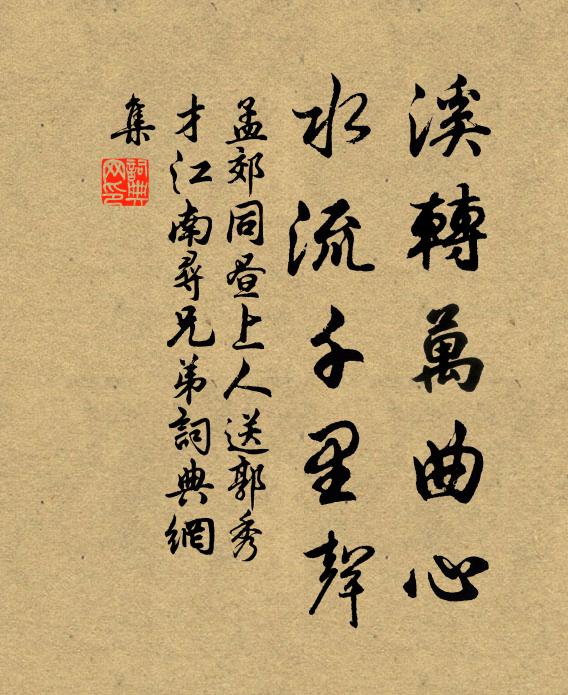 溪轉萬曲心
水流千里聲
孟郊同晝上人送郭秀
才江南尋兄弟詞典網
集
詞典
网印